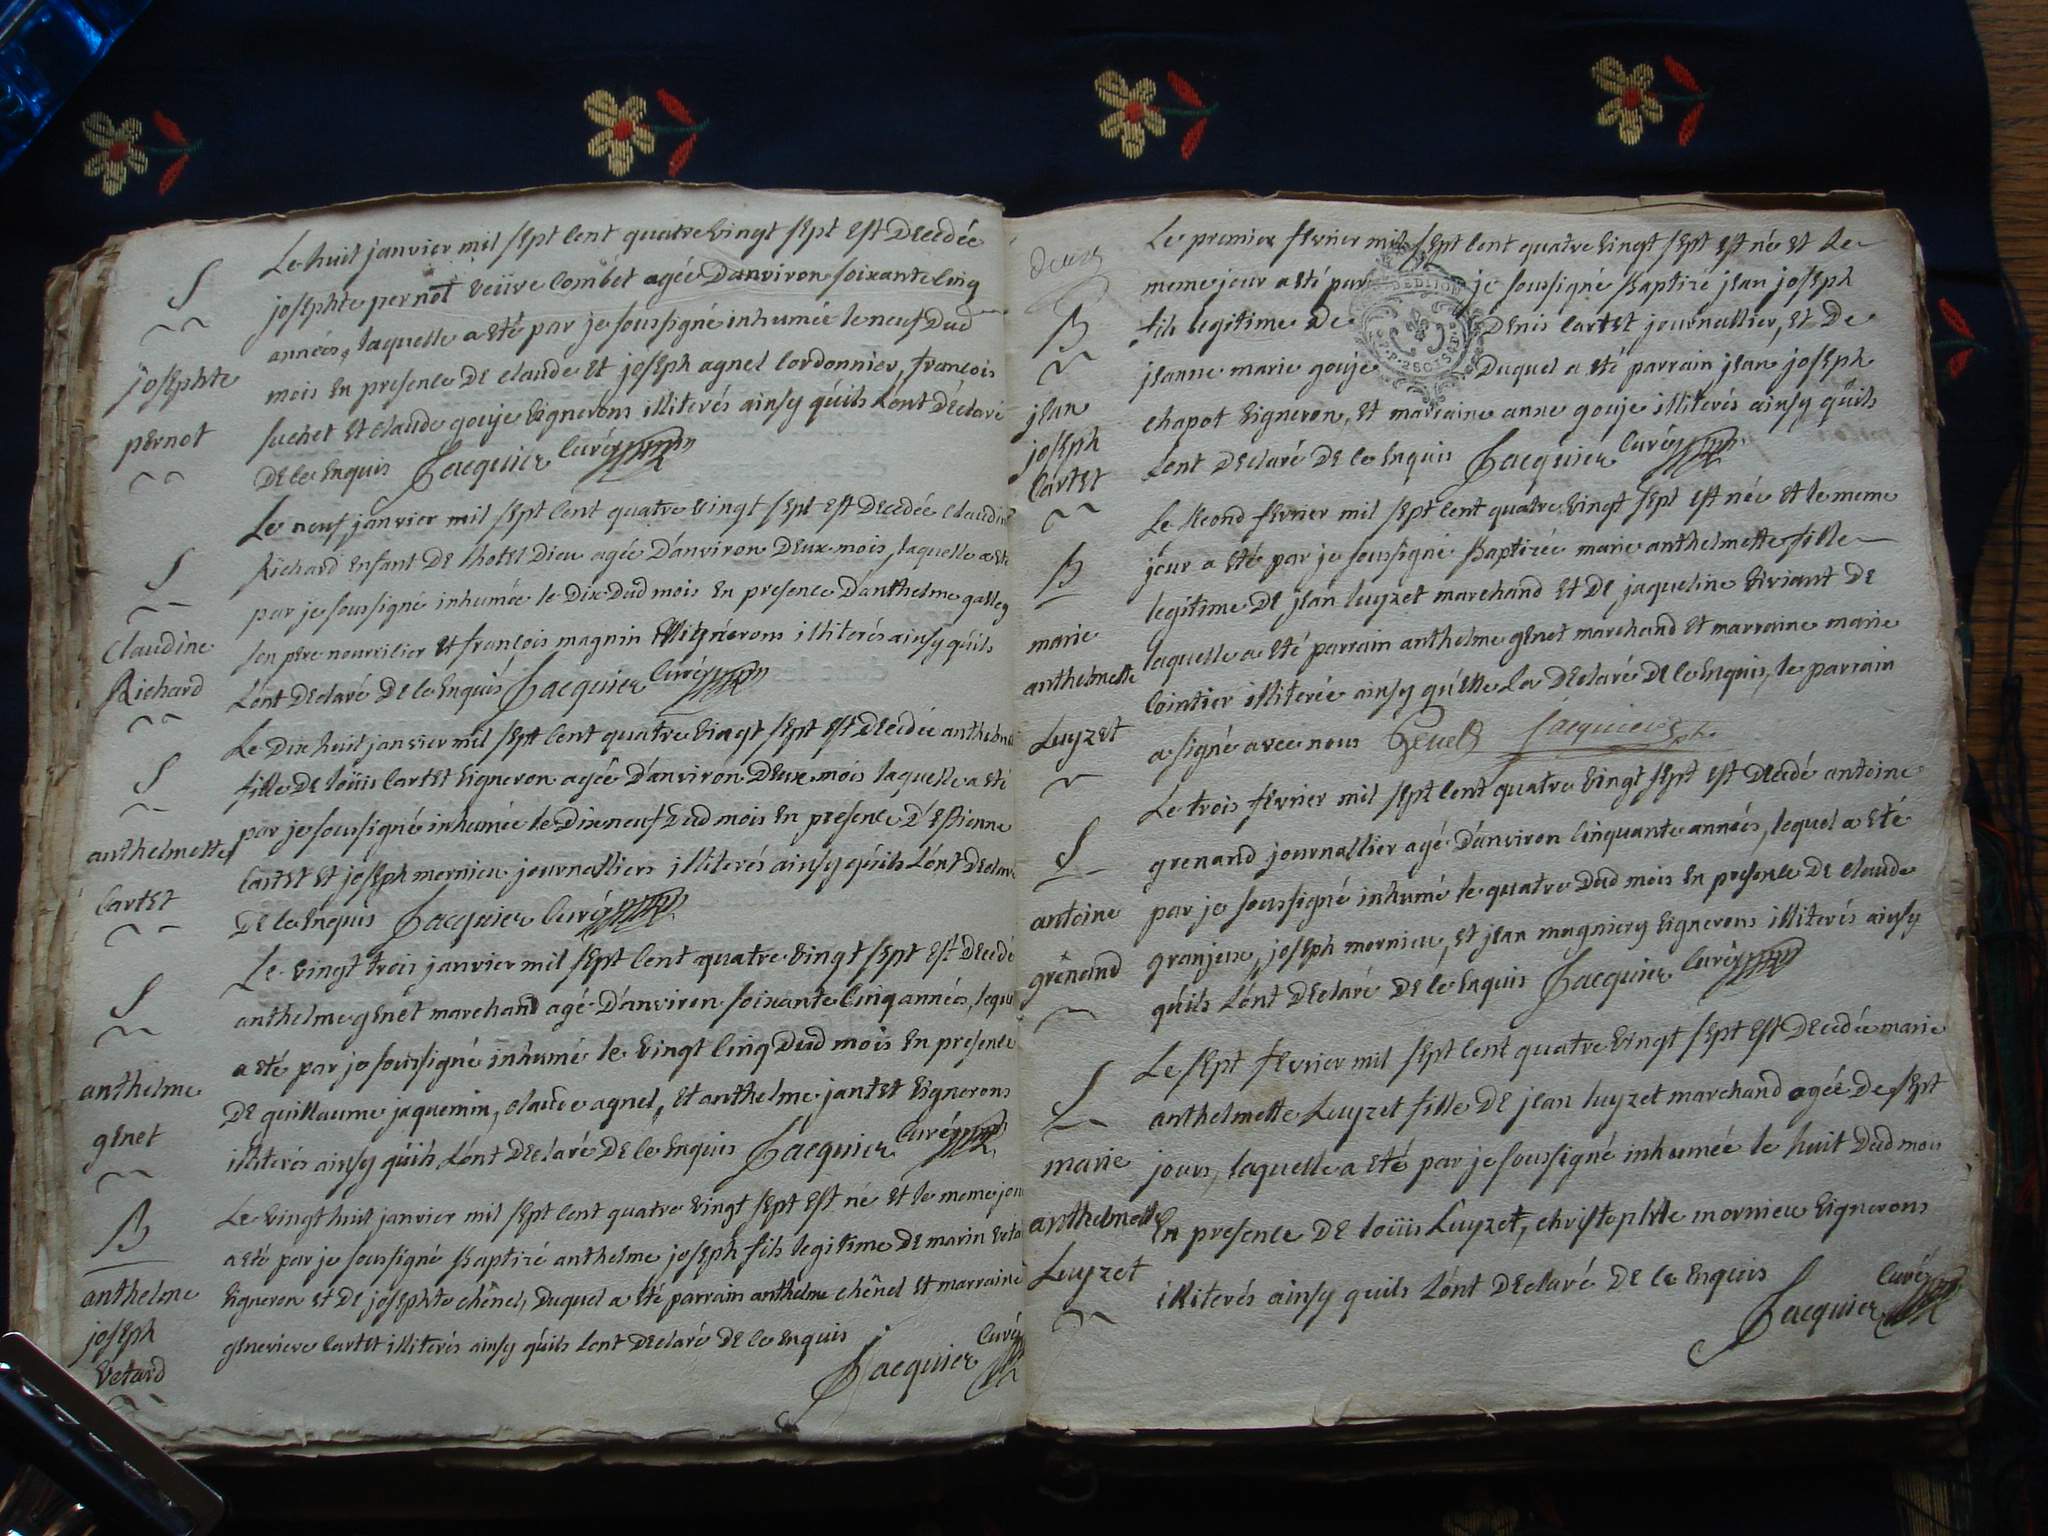 Le huit janvier mil sept cent quatre vingt sept est decedée
S
josephte pernot veüve combet agée d'anviron soixante cinq
années, laquelle a eté par je soussigné inhumée le neuf dud
josephte
mois en presence de claude et joseph agnel cordonnier, françois
pernot
suchet et claude gouje vignerons illiterés ainsy qu'ils l'ont déclaré
de ce enquis Jacquier curé
Le neuf janvier mil sept cent quatre vingt sept est decedée claudine
S
Richard enfant de l'hotel Dieu agée d'anviron deux mois, laquelle a eté
par je soussigné inhumée le dix dud mois en presence d'anthelme
Claudine
son pere nourricier et françois magnin vignerons illiterés ainsy qu'ils
Richard
l'ont declaré de ce enquis Jacquier curé
Le dix huit janvier mil sept cent quatre vingt sept est decedée anthelmette
S
fille de loüis cartet vigneron agée d'anviron deux mois laquelle a eté
par je soussigné inhumée le dix neuf dud mois en presence d'Estienne
anthelmette
cartet et joseph mornieu journalliers illiterés ainsy qu'ils l'ont declaré
cartet
de ce enquis Jacquier curé
Le vingt trois janvier mil sept cent quatre vingt sept est decedé
S
anthelme genet marchand agé d'anviron soixante cinq années, lequel
a eté par je soussigné inhumé le vingt cinq dud mois en presence
anthelme
de guillaume jaquemin, claude agnel, et anthelme jantet vignerons
genet
illiterés ainsy qu'ils l'ont declaré de ce enquis Jacquier curé
Le vingt huit janvier mil sept cent quatre vingt sept est né et le meme jour
B
a eté par je soussigné Baptizé anthelme joseph fils legitime de marin vetard
anthelme
vigneron et de josephte chênel, duquel a eté parrain anthelme chênel et marraine
joseph
genevieve cartet illiterés ainsy qu'ils l'ont declaré de ce enquis
vetard
Jacquier curé
deux
Le premier fevrier mil sept cent quatre vingt sept est né et le
meme jour a eté par je soussigné Baptizé jean joseph
B
fils legitime de Denis cartet journallier, et de
jeanne marie gouje Duquel a eté parrain jean joseph
jean
chapot vigneron, et marraine anne gouje illiterés ainsy qu'ils
joseph
l'ont declaré de ce enquis Jacquier curé
cartet
Le second fevrier mil sept cent quatre vingt sept est née et le meme
B
jour a eté par je soussigné Baptizée marie anthelmette fille
legitime de jean Luyzet marchand et de jaqueline Viviant de
marie
laquelle a eté parrain anthelme genet marchand et marraine marie
anthelmette
cointier illiterée ainsy qu'elle l'a declaré de ce enquis, le parrain
Luyzet
a signé avec nous Genet Jacquier
Le trois fevrier mil sept cent quatre vingt sept est decedé antoine
S
grenand journallier agé d'anviron cinquante années, lequel a eté
par je soussigné inhumé le quatre dud mois en presence de claude
antoine
granjeux, joseph mornieu, et jean magniery vignerons illiterés ainsy
grenand
qu'ils l'ont declaré de ce enquis Jacquier curé
Le sept fevrier mil sept cent quatre vingt sept est decedée marie
S
anthelmette Luyzet fille de jean luyzet marchand agée de sept
marie
jours, laquelle a eté par je soussigné inhumée le huit dud mois
anthelmette
En presence de loüis Luyzet, christophle mornieu vignerons
Luyzet
illiterés ainsy qu'ils l'ont declaré de ce enquis
Jacquier curé